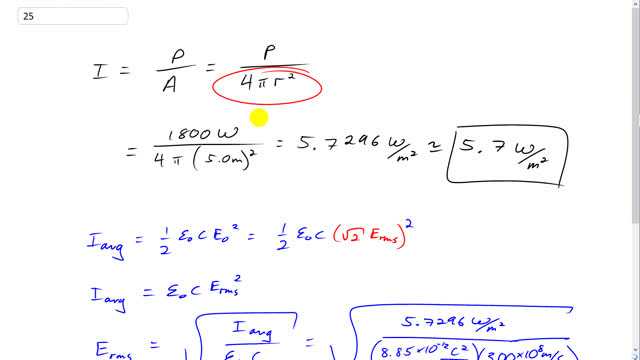 25
I = P/A = P/(4πr²)
= 1800W/(4π(5.0m)²) = 5.7296 W/m² ≃ 5.7 W/m²
I_avg = 1/2 ε₀ C E₀² = 1/2 ε₀ C (√2 E_rms)²
I_avg = ε₀ C E_rms²
E_rms = √(I_avg/(ε₀ C)) = √(5.7296 W/m²/((8.85×10⁻¹² C²/)(3.00×10⁸ m/s)